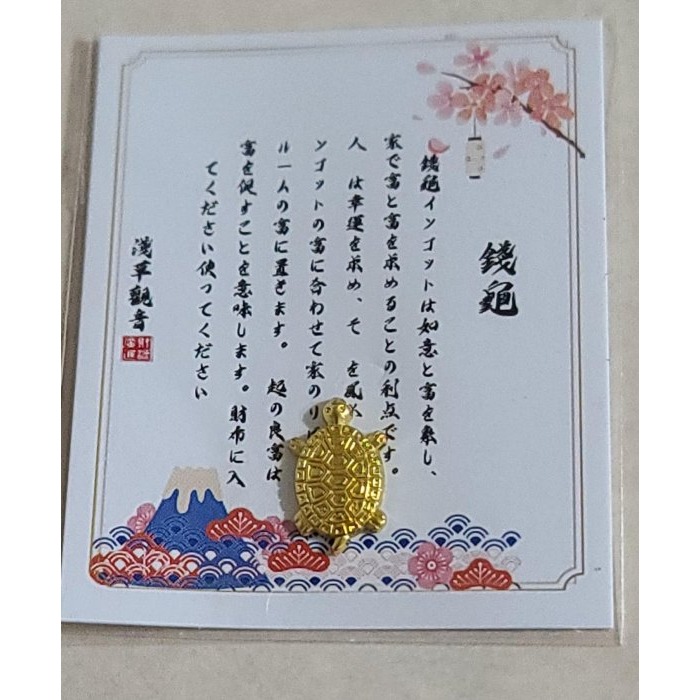 錢龜
錢龜インゴットは如意と富を象し、
家で富と富を求めることの利点です。
人 は幸運を求め、そ を風
ンゴットの富に合わせて家のリ
ルー人の富に置きます。 起の良富は
富を促すことを意味します。財布に入
てください使ってください
淺草觀音